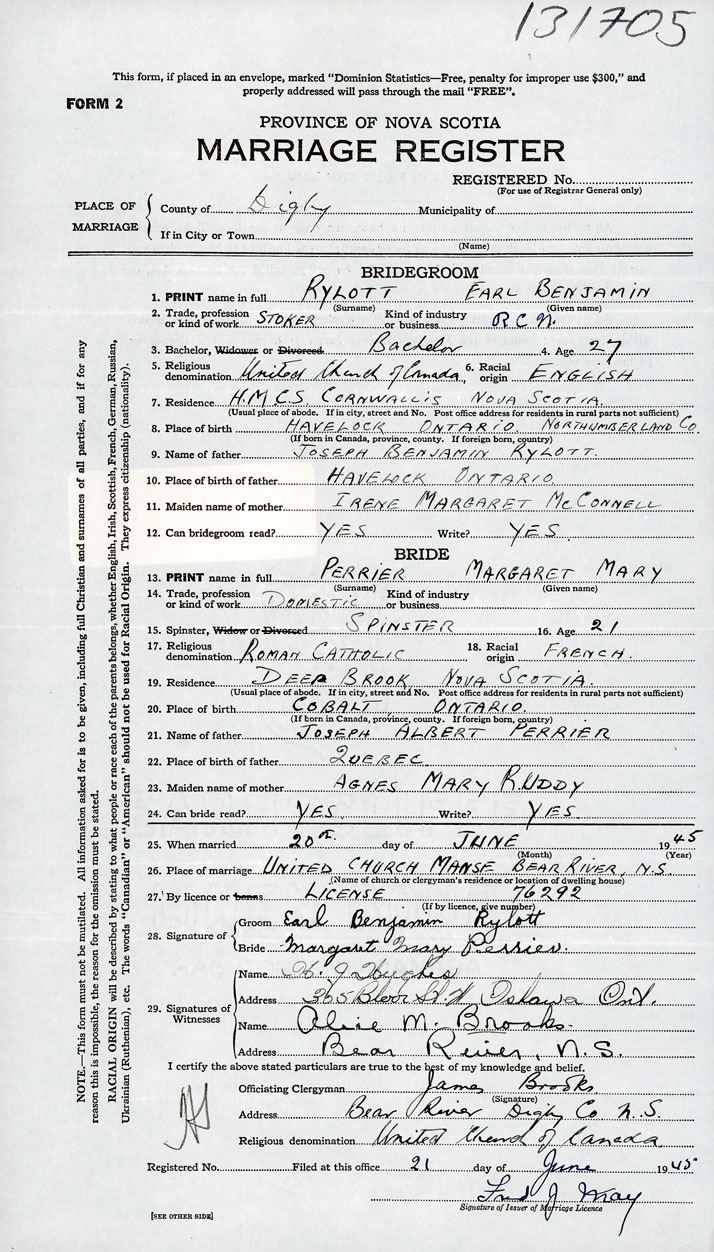 131705
This form, if placed in an envelope, marked "Dominion Statistics—Free, penalty for improper use $300," and
properly addressed will pass through the mail "FREE".
FORM 2
PROVINCE OF NOVA SCOTIA
MARRIAGE REGISTER
REGISTERED No.
(For use of Registrar General only)
PLACE OF MARRIAGE
County of Digby Municipality of
If in City or Town
(Name)
BRIDEGROOM
1. PRINT name in full RYLOTT EARL BENJAMIN
(Surname) (Given name)
2. Trade, profession or kind of work STOKER Kind of industry or business R.C.N.
3. Bachelor, Widower or Divorced Bachelor 4. Age 27
5. Religious denomination United Church of Canada 6. Racial origin ENGLISH
7. Residence H.M.C.S. CORNWALLIS NOVA SCOTIA
(Usual place of abode. If in city, street and No. Post office address for residents in rural parts not sufficient)
8. Place of birth HAVELOCK ONTARIO NORTHUMBERLAND CO.
(If born in Canada, province, county. If foreign born, country)
9. Name of father JOSEPH BENJAMIN RYLOTT.
10. Place of birth of father HAVELOCK ONTARIO
11. Maiden name of mother IRENE MARGARET McCONNELL
12. Can bridegroom read? YES Write? YES
BRIDE
13. PRINT name in full PERRIER MARGARET MARY
(Surname) (Given name)
14. Trade, profession or kind of work DOMESTIC Kind of industry or business
15. Spinster, Widow or Divorced SPINSTER 16. Age 21
17. Religious denomination ROMAN CATHOLIC 18. Racial origin FRENCH.
19. Residence DEEP BROOK NOVA SCOTIA.
(Usual place of abode. If in city, street and No. Post office address for residents in rural parts not sufficient)
20. Place of birth COBALT ONTARIO.
(If born in Canada, province, county. If foreign born, country)
21. Name of father JOSEPH ALBERT PERRIER
22. Place of birth of father QUEBEC
23. Maiden name of mother AGNES MARY RUDDY
24. Can bride read? YES. Write? YES
25. When married 20th day of JUNE 1945
(Month) (Year)
26. Place of marriage UNITED CHURCH MANSE BEAR RIVER, N.S.
(Name of church or clergyman's residence or location of dwelling house)
27. By licence or banns LICENSE 76292
(If by licence, give number)
28. Signature of
Groom Earl Benjamin Rylott
Bride Margaret Mary Perrier.
29. Signatures of Witnesses
Name H. J Hughes
Address 365 Bloor St. W Oshawa Ont.
Name Alice M. Brooks.
Address Bear River, N.S.
I certify the above stated particulars are true to the best of my knowledge and belief.
Officiating Clergyman James Brooks
(Signature)
Address Bear River Digby Co N.S.
Religious denomination United Church of Canada
Registered No. Filed at this office 21 day of June 1945
Fred J May
Signature of Issuer of Marriage Licence
[SEE OTHER SIDE]
NOTE.—This form must not be mutilated. All information asked for is to be given, including full Christian and surnames of all parties, and if for any
reason this is impossible, the reason for the omission must be stated.
RACIAL ORIGIN will be described by stating to what people or race each of the parents belongs, whether English, Irish, Scottish, French, German, Russian,
Ukrainian (Ruthenian), etc. The words "Canadian" or "American" should not be used for Racial Origin. They express citizenship (nationality).